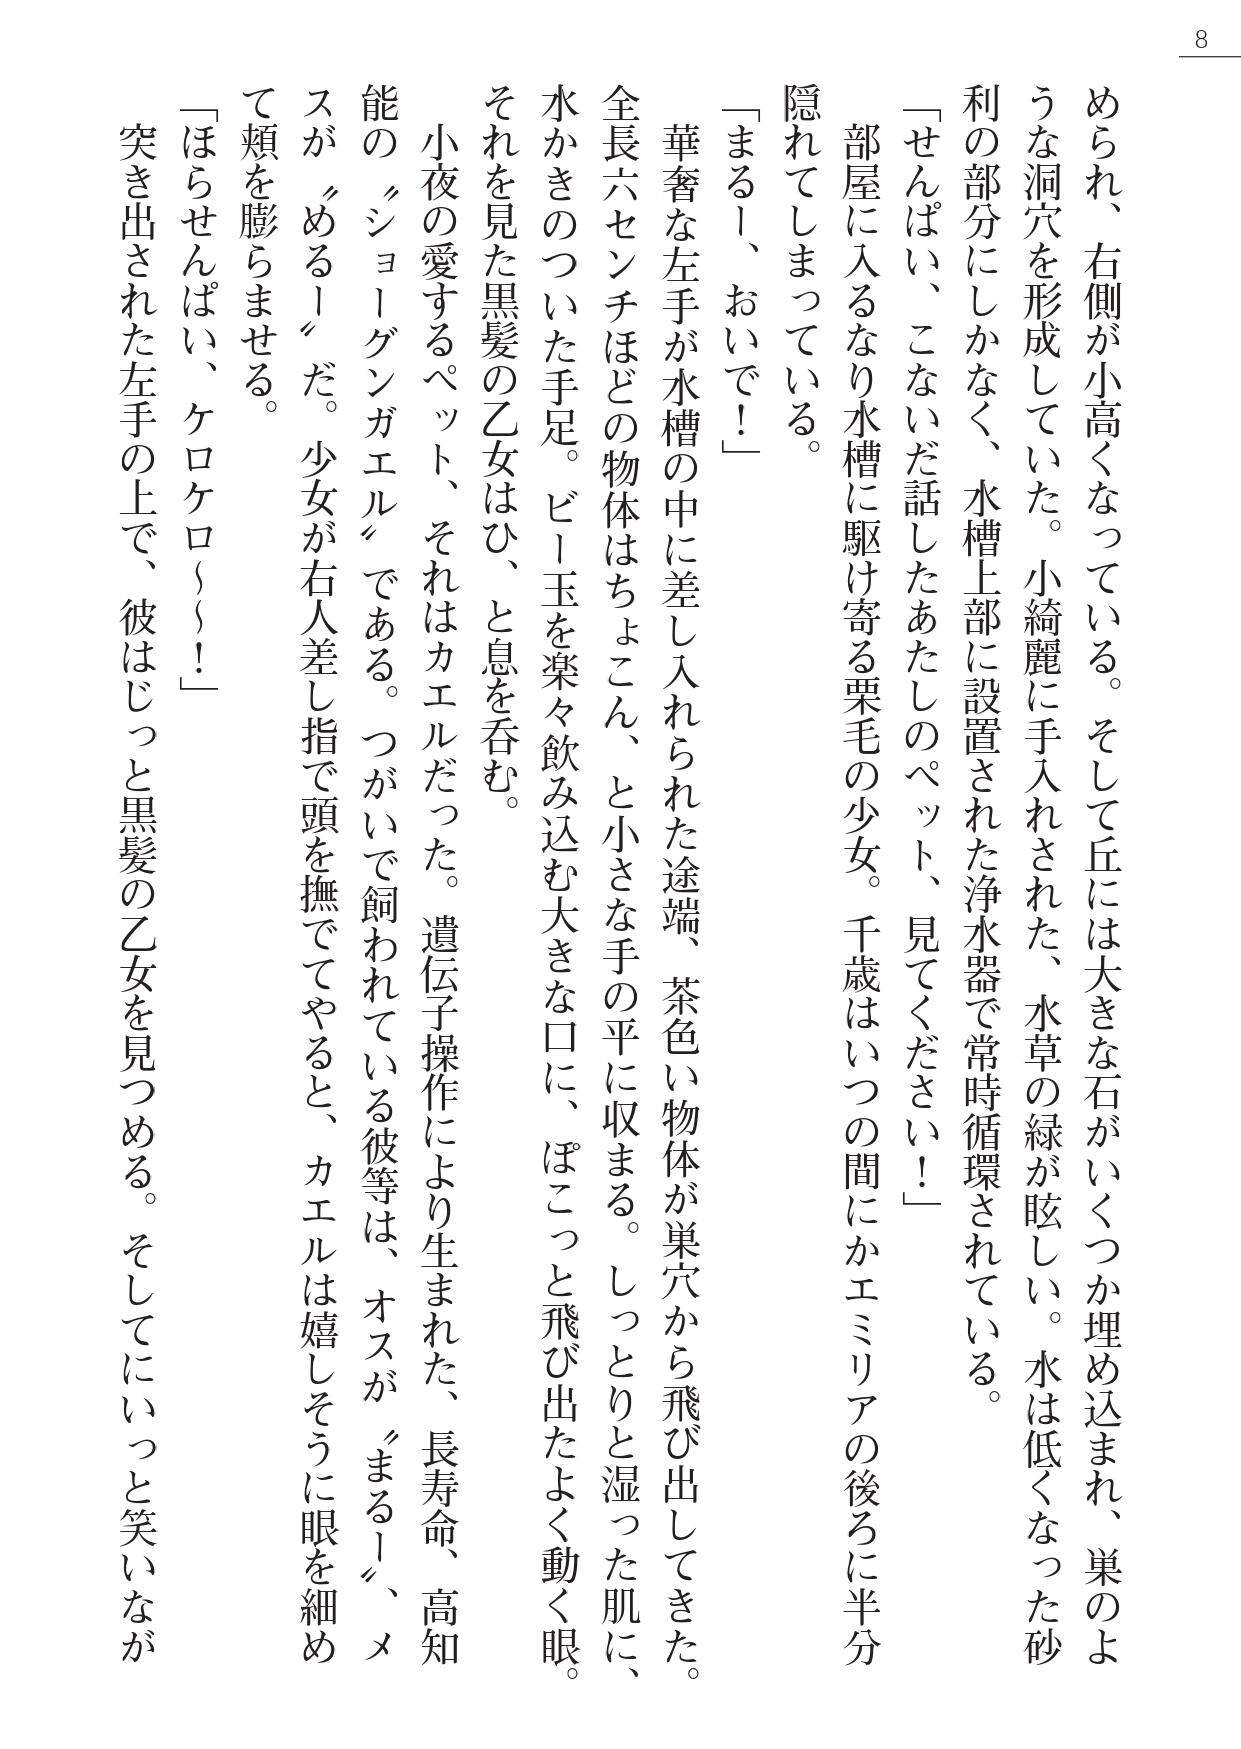 8
められ、右側が小高くなっている。そして丘には大きな石がいくつか埋め込まれ、巣のよ
うな洞穴を形成していた。小綺麗に手入れされた、水草の緑が眩しい。水は低くなった砂
利の部分にしかなく、水槽上部に設置された浄水器で常時循環されている。
「せんぱい、こないだ話したあたしのペット、見てください！」
部屋に入るなり水槽に駆け寄る栗毛の少女。千歳はいつの間にかエミリアの後ろに半分
隠れてしまっている。
「まるー、おいで！」
華奢な左手が水槽の中に差し入れられた途端、茶色い物体が巣穴から飛び出してきた。
全長六センチほどの物体はちょこん、と小さな手の平に収まる。しっとりと湿った肌に、
水かきのついた手足。ビー玉を楽々飲み込む大きな口に、ぽこっと飛び出たよく動く眼。
それを見た黒髪の乙女はひ、と息を呑む。
小夜の愛するペット、それはカエルだった。遺伝子操作により生まれた、長寿命、高知
能の〝ショーグンガエル〟である。つがいで飼われている彼等は、オスが〝まるー〟、メ
スが〝めるー〟だ。少女が右人差し指で頭を撫でてやると、カエルは嬉しそうに眼を細め
て頬を膨らませる。
「ほらせんぱい、ケロケロ～～！」
突き出された左手の上で、彼はじっと黒髪の乙女を見つめる。そしてにいっと笑いなが